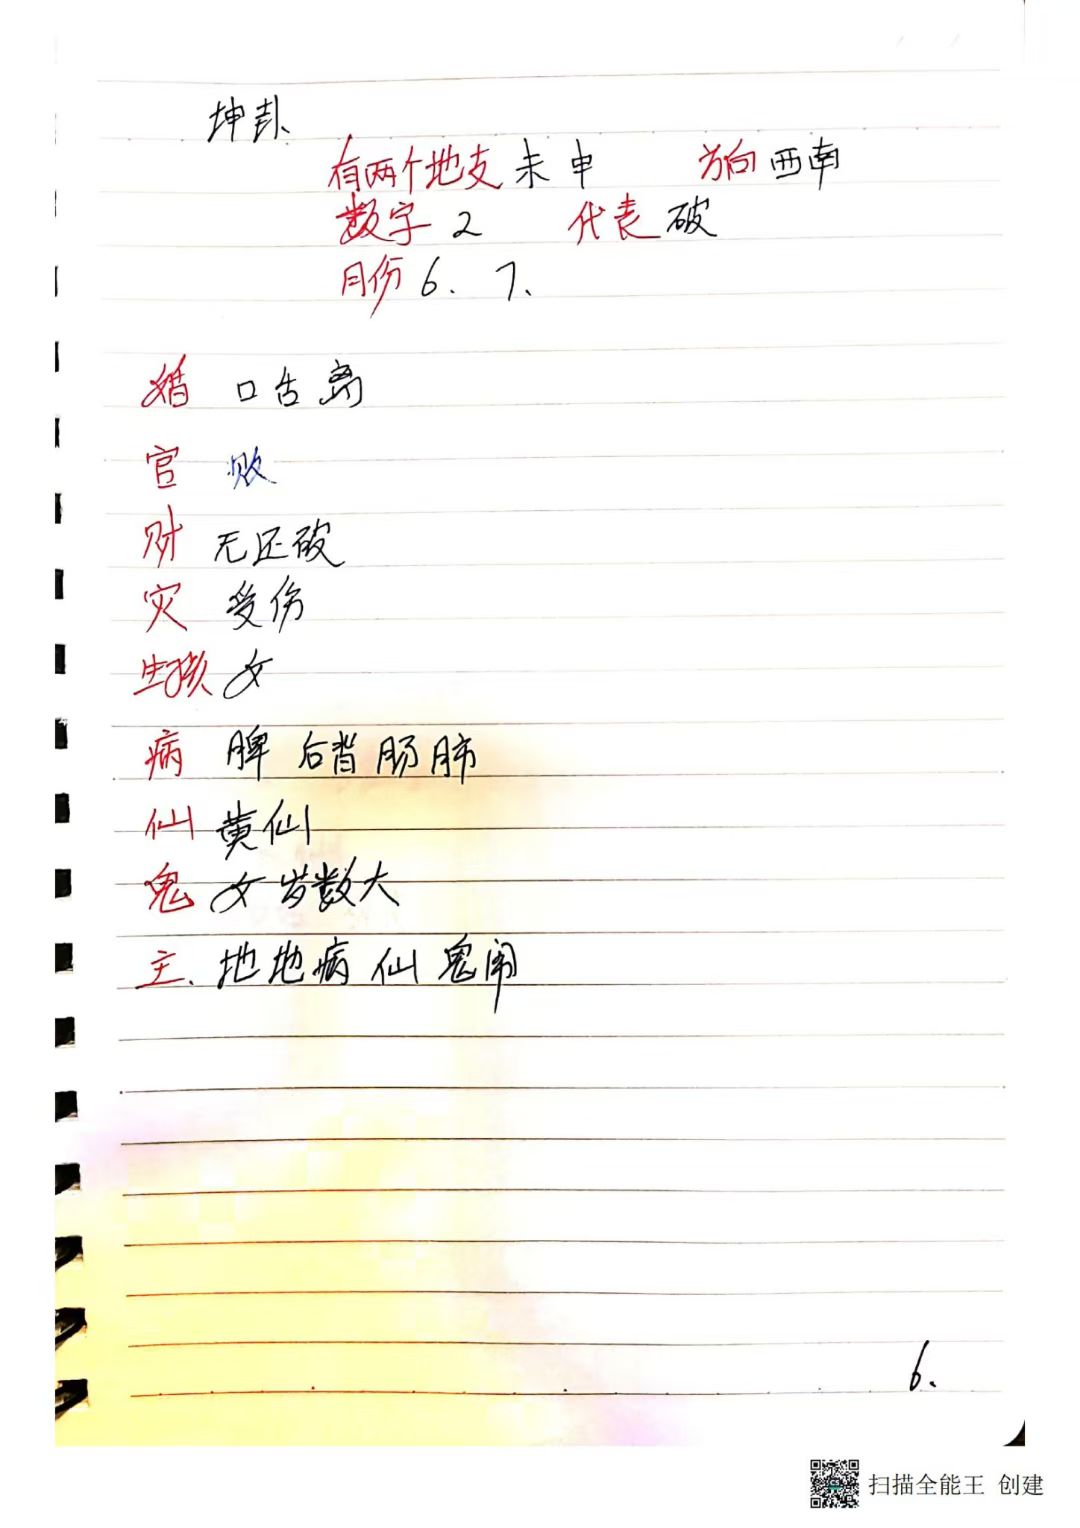 坤卦、
有两个地支 未 申 方向 西南
数字 2 代表 破
月份 6. 7.
婚 口舌 离
官 败
财 无还破
灾 受伤
生孩 女
病 脾 后背 肠 肺
仙 黄仙
鬼 女 岁数大
主、地地病 仙 鬼闹
6.
扫描全能王 创建